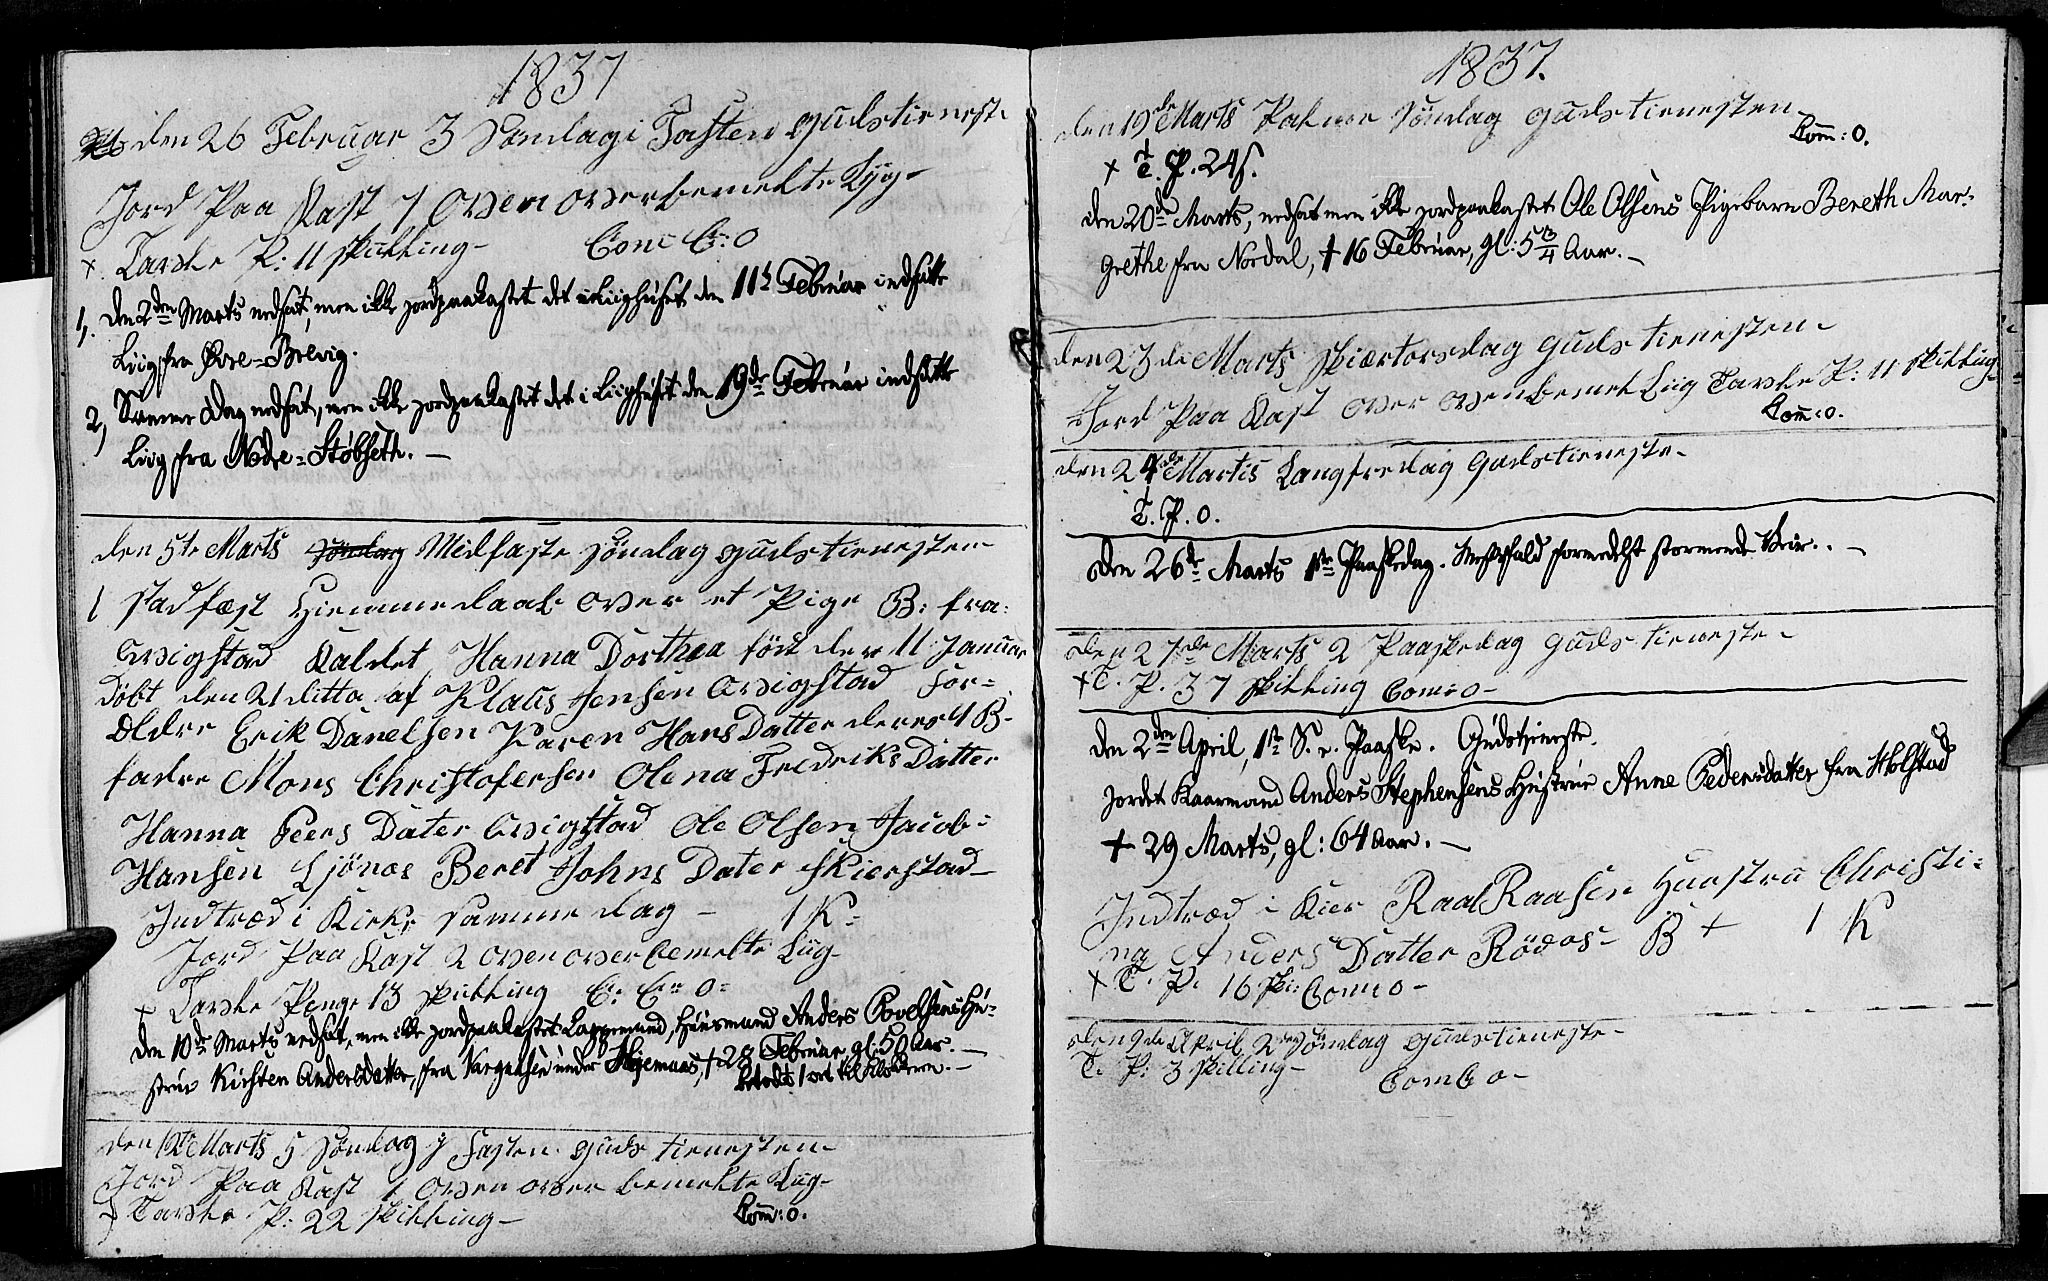 1837
den 26 Februar 3 Søndag i Fasten gudstienest
Jord Paa Kast 1 Oven overbemelte Lyg-
x Tavske P: 11 skilling- Com C: 0
1, den 2den Marts nedsat, men ikke jordpaakastet det i Liighuset den 11te Februar indsatte
Liig fra Øvre-Brevig.
2, Samme Dag nedsat, men ikke jordpaakastet det i Liighuset den 19de Februar indsatte
Liig fra Nedre-Stöbseth.-
den 5te Marts Søndag Midfaste Søndag gudstienesten
1 stadfæst Hiemmedaab over et Pige B: fra
Qvigstad Kaldet Hanna Dorthea föd den 11 Januar
döbt den 21 ditto af Klaus Jensen Qvigstad For=
ældre Erik Danelsen Karen HansDatter deres 4 B-
fadre Mons Christofersen Olena Fredriks Datter
Hanna Peers Dater Qvigstad Ole Olsen Jacob
Hansen Ljönos Beret Johns Dater Skierstad
Indtræd i Kirke samme dag - 1 K-
Jord Paa Kast 2 oven overbemelte Liig-
x Tavske Penge 13 skilling C: C: 0=
Den 10de Marts nedsat, men ikke jordpaakastet Lappemand, Huusmand Anders Povelsens Hu-
strue Kirsten Andersdatter, fra under Hjemaas, + 28 Februar, gl: 50 Aar.-
betalt 1 ort til Klokkeren.-
den 12te Marts 5 Søndag i Fasten gudstienesten
Jord Paa Kast 1 oven over bemelte Liig-
Tavske P: 22 skilling- Com: 0.
1837.
den 19de Marts Palme Søndag gudstienesten
Com: 0.
x T. P. 24 s.
den 20de Marts, nedsat men ikke jordpaakastet Ole Olsens Pigebarn Bereth Mar-
grethe fra Nordal, + 16 Februar, gl: 5 3/4 Aar.-
den 23de Marts Skiærtorsdag gudstienesten
Jord Paa Kast over ovenbemelt Liig Tavske P: 11 skilling
Com: 0.
den 24de Martis Langfredag Gudstieneste-
T. P. 0.
Den 26de Marts 1ste Paaskedag. Messefald formedelst stormende Veir.-
den 27de Marts 2 Paaskedag gudstieneste-
x T. P. 37 skilling Com: 0-
den 2den April, 1ste S. e. Paaske. Gudstjeneste.
Jordet Kaarmand Anders Stephensens Hustrue Anne Pedersdatter fra Holstad
+ 29 Marts, gl: 64 Aar.-
Indtræd i Kier Raal Raasen Huustru Christi=
na Anders Datter Rödaas- B + 1 K
x T. P. 16 sk: Com: 0-
den 9de April 2den Søndag gudstieneste-
T. P: 3 skilling- Com C 0-